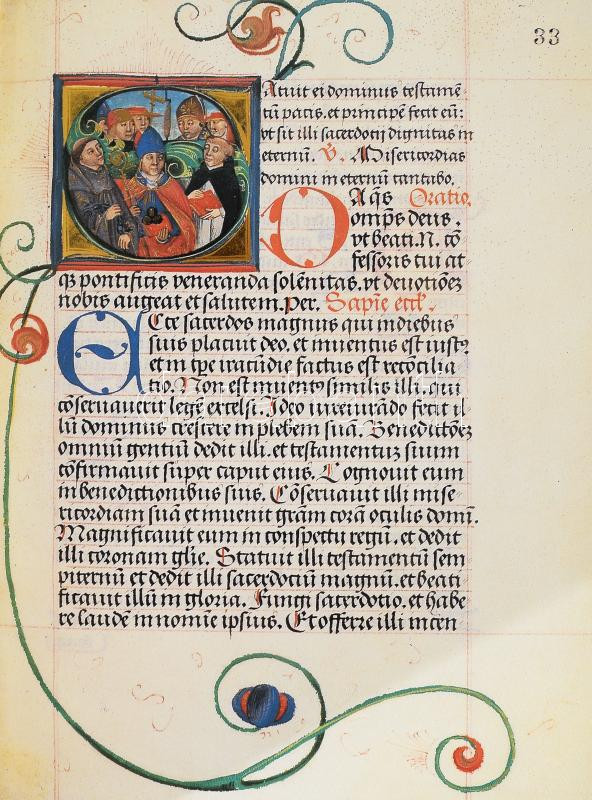 33
Statuit ei dominus testamē
tū pacis. et principē fecit eū:
vt sit illi sacerdotij dignitas in
eternū. V. Misericordias
domini in eternū cantabo.
DA q̄s Oratio.
omp̄s deus.
vt beati. N. cō
fessoris tui at
qꝫ pontificis veneranda solēnitas. vt deuotiōeꝫ
nobis augeat et salutem. per. Sapīe eccꝉ.
ECce sacerdos magnus qui in diebus
suis placuit deo. et inuentus est iustꝰ.
et in tꝑe iracūdie factus est recōcilia
tio. Non est inuentꝰ similis illi. qui
cōseruauerit legē excelsi. Ideo iureiurādo fecit il
lū dominus crescere in plebem suā. Benedictōeꝫ
omniū gentiū dedit illi. et testamentuꝫ suum
cōfirmauit super caput eius. Cognouit eum
in benedictionibus suis. Cōseruauit illi mise
ricordiam suā et inuenit grām corā oculis domī.
Magnificauit eum in conspectu regū. et dedit
illi coronam glīe. Statuit illi testamentū sem
piternū et dedit illi sacerdotiū magnū. et beati
ficauit illū in gloria. Fungi sacerdotio. et habe
re laudē in nomīe ipsius. Et offerre illi incen